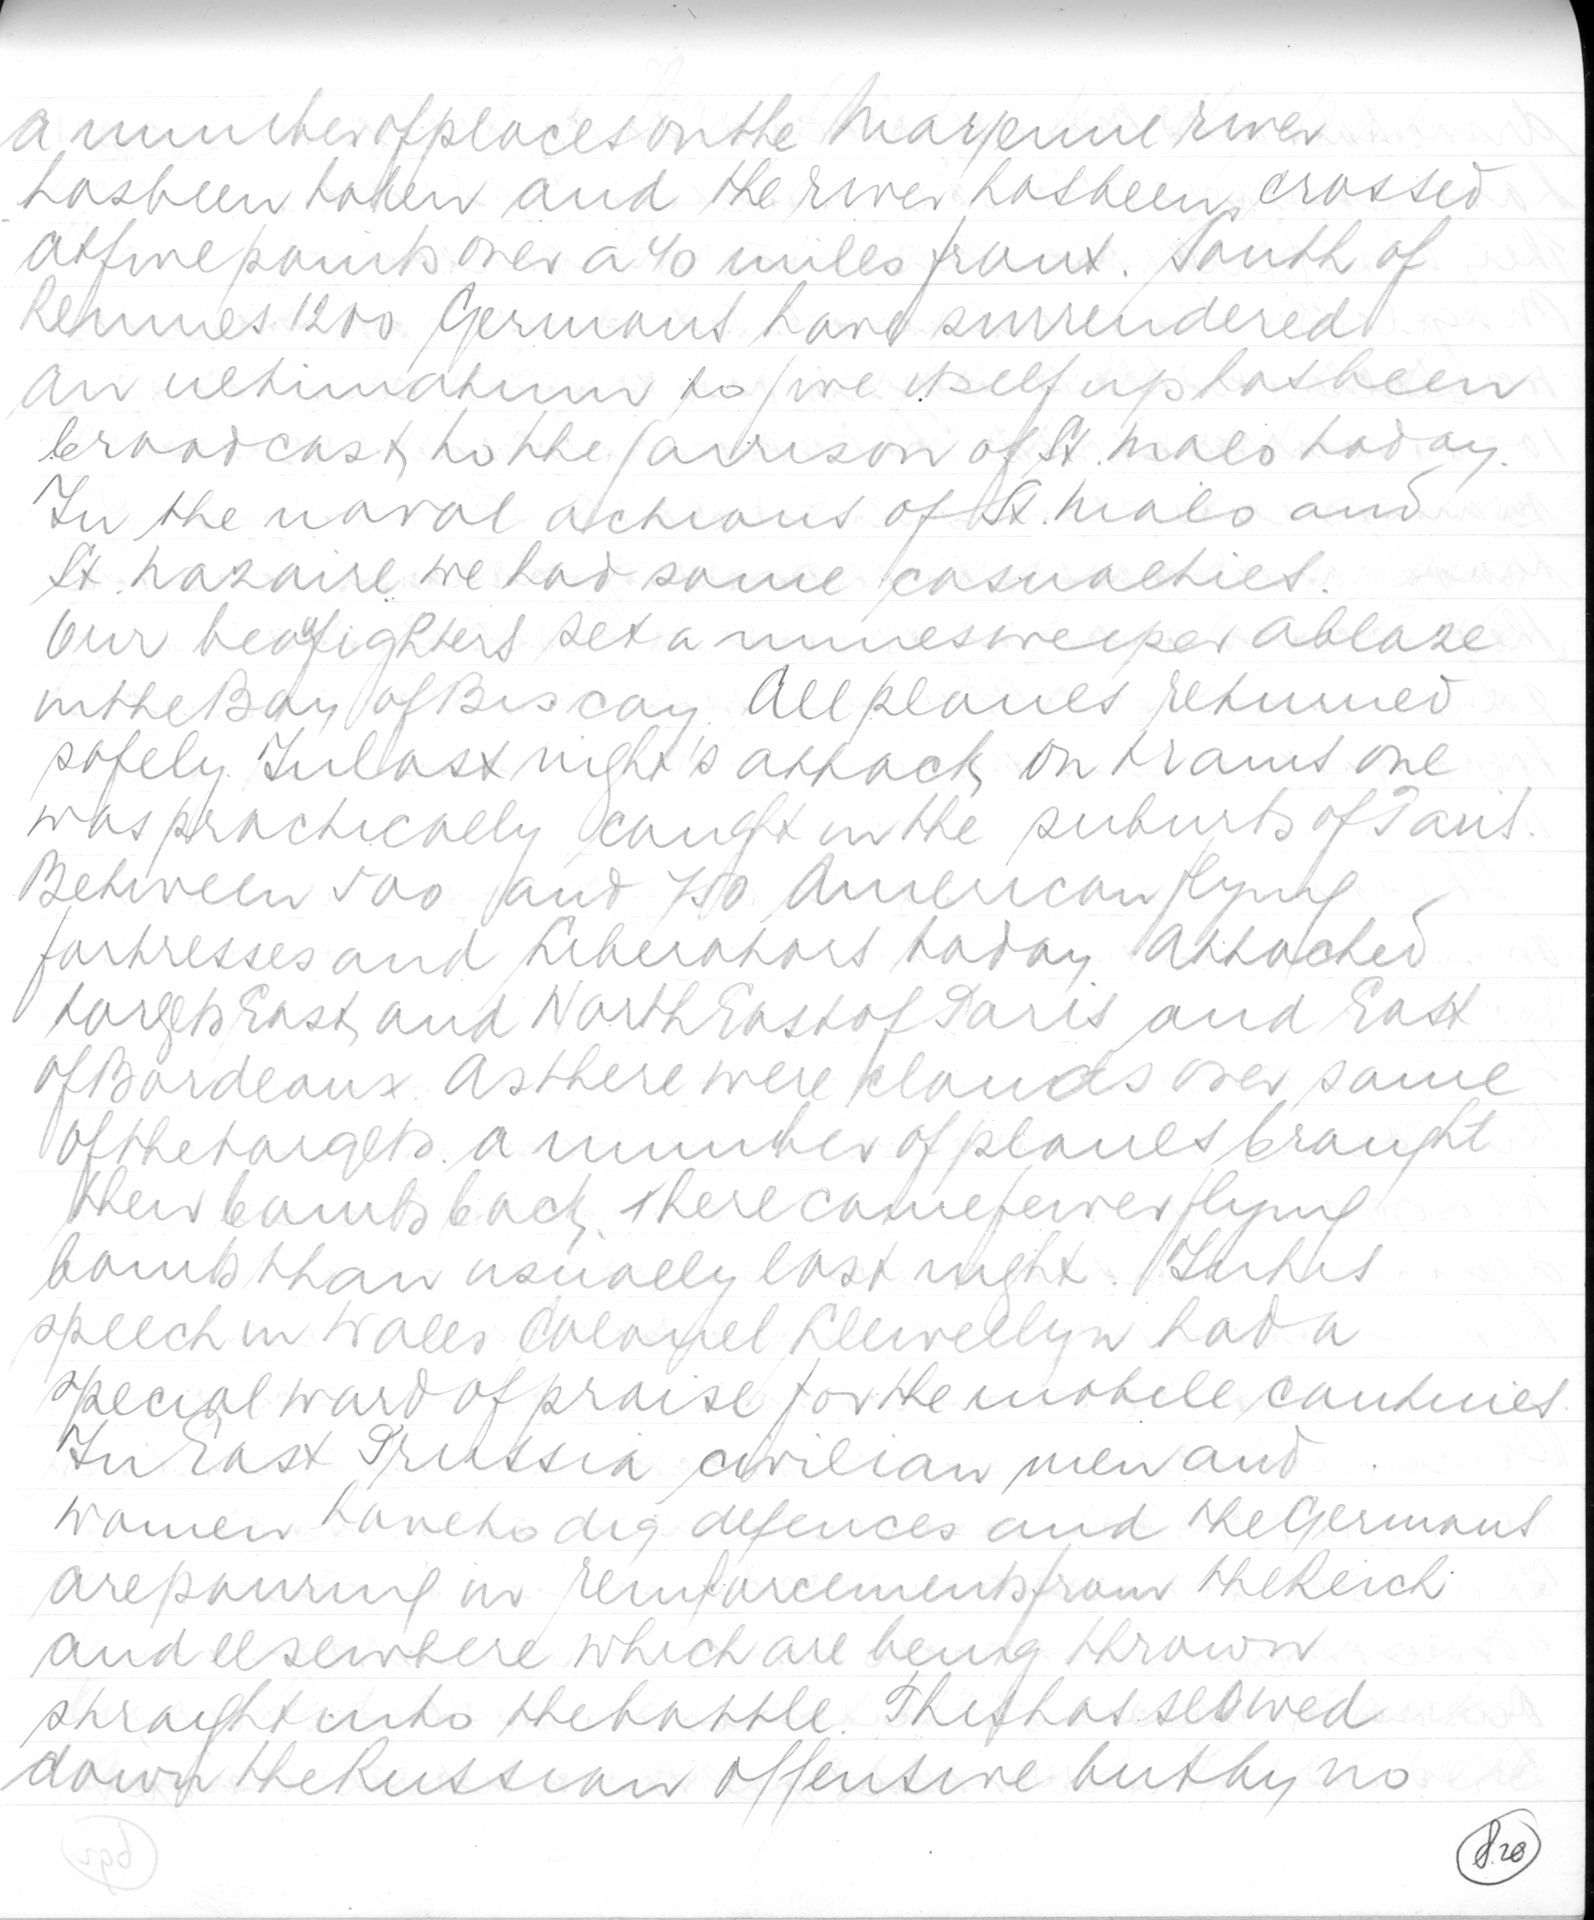 a number of places on the Mayenne river
has been taken and the river has been crossed
at five points over a 40 miles front. South of
Rennes 1200 Germans have surrendered
an ultimatum to give itself up has been
broadcast to the garrison of St. Malo today.
In the naval actions of St. Malo and
St. Nazaire we had some casualties.
Our beaufighters set a minesweeper ablaze
in the Bay of Biscay. All planes returned
safely. In last night's attack on trains one
was practically caught in the suburbs of Paris.
Between 500 and 750 American flying
fortresses and Liberators today attacked
targets East and North East of Paris and East
of Bordeaux. As there were clouds over some
of the targets a number of planes brought
their bombs back. There came fewer flying
bombs than usually last night. In his
speech in Wales Colonel Llewellyn had a
special word of praise for the mobile cantines.
In East Prussia civilian men and
women have to dig defences and the Germans
are pouring in reinforcements from the Reich
and elsewhere which are being thrown
straight into the battle. This has slowed
down the Russian offensive but by no